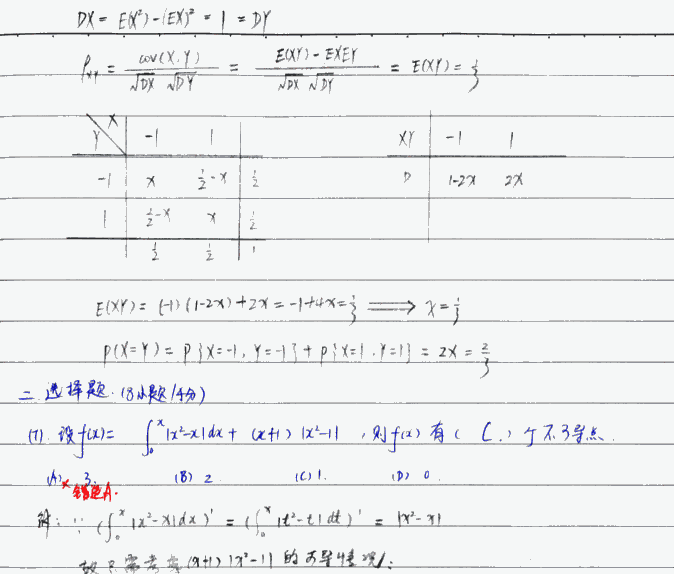 DX = E(X²) - (EX)² = 1 = DY
ρxy = cov(X,Y) / √DX √DY = E(XY) - EXEY / √DX √DY = E(XY) = 1/3
Y X -1 1 XY -1 1
-1 x 1/2-x 1/2 P 1-2x 2x
1 1/2-x x 1/2
1/2 1/2 1
E(XY) = (-1)(1-2x)+2x = -1+4x = 1/3 ⟹ x = 1/3
P(X=Y) = P{X=-1, Y=-1} + P{X=1, Y=1} = 2x = 2/3
二 选择题 (8小题/4分)
(7). 设f(x)= ∫₀ˣ|x²-x|dx + (x+1)|x²-1| , 则f(x)有( C. )个不可导点.
(A) 3. (B) 2 (C) 1. (D) 0.
× 错选A.
解: ∵ (∫₀ˣ|x²-x|dx)' = (∫₀ˣ|t²-t|dt)' = |x²-x|
故只需考察(x+1)|x²-1|的可导情况: